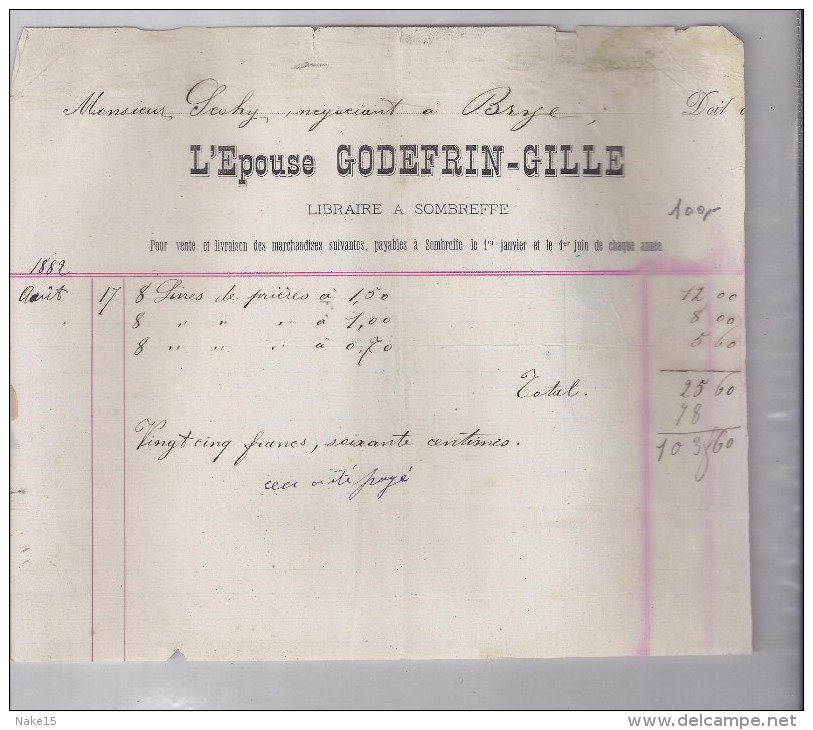 Monsieur Scohy, négociant à Brye, Doit
L'Epouse GODEFRIN-GILLE
LIBRAIRE A SOMBREFFE
100,-
Pour vente et livraison des marchandises suivantes, payables à Sombreffe le 1er janvier et le 1er juin de chaque année.
1882
Août 17 8 Livres de prières à 1,50 12 00
8 " " " à 1,00 8 00
8 " " " à 0,70 5 60
Total. 25 60
78
Vingt cinq francs, soixante centimes. 103,60
ceci a été payé
Nake15
delcampe.net